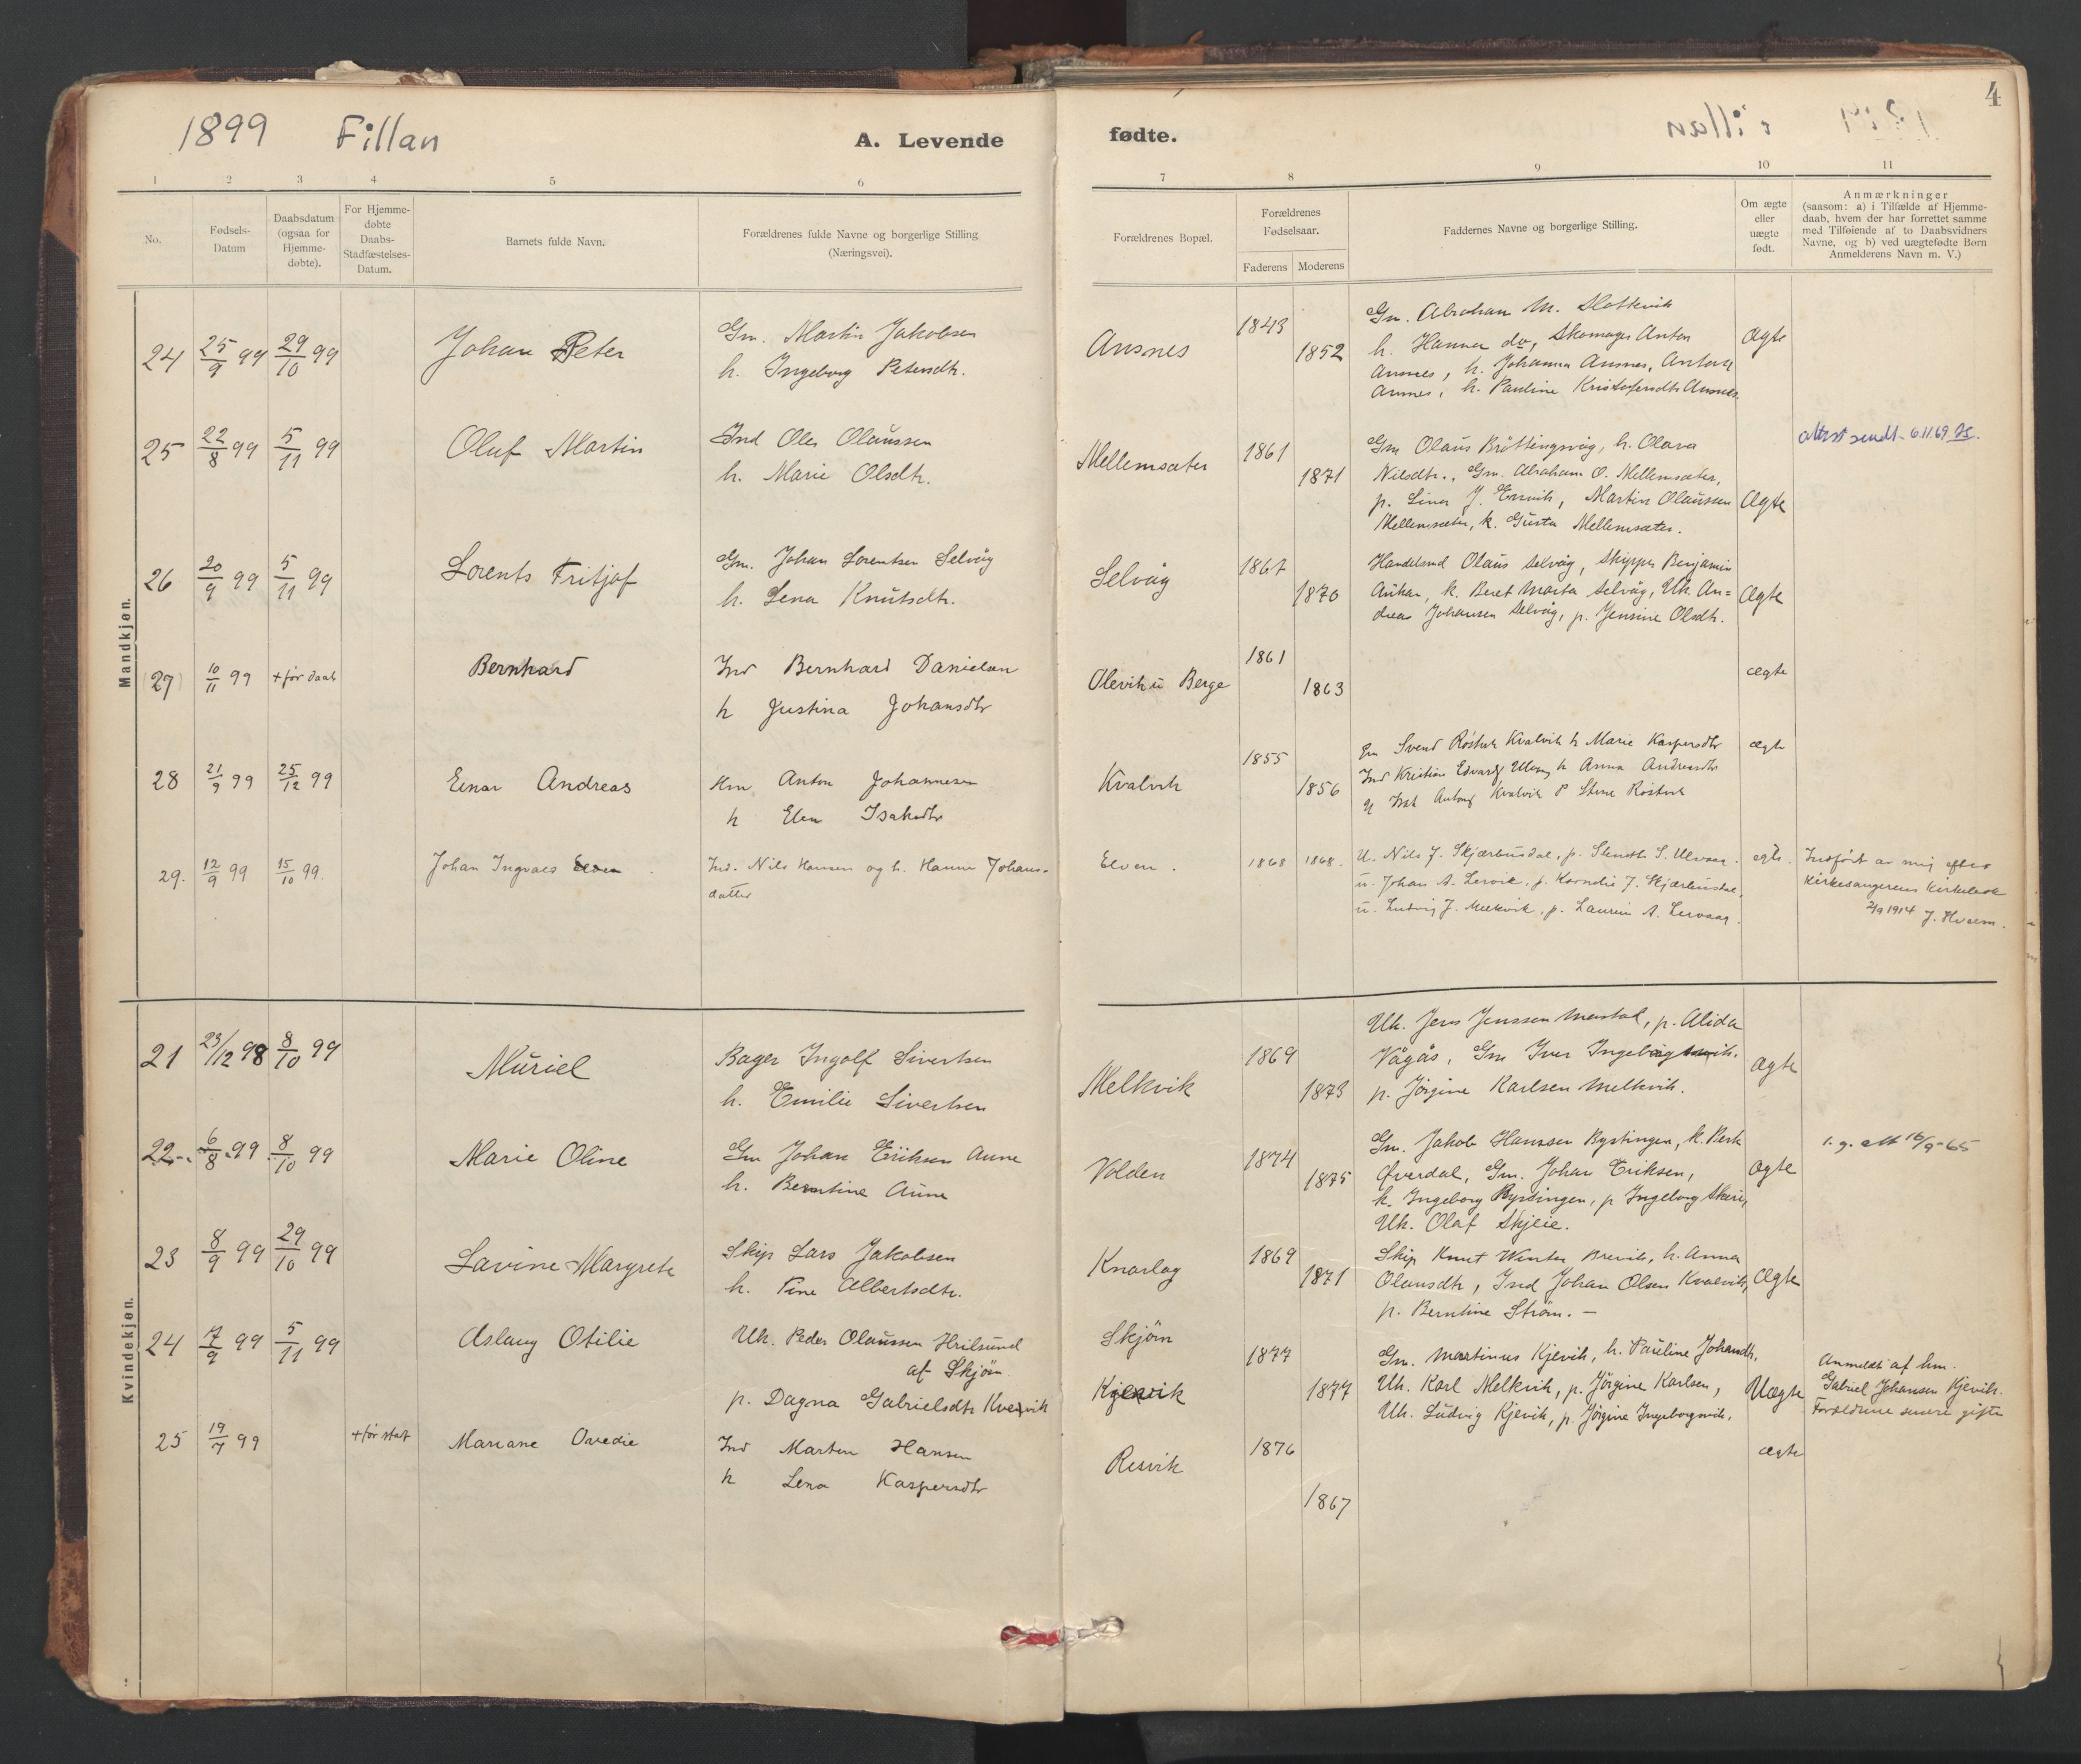 1899 Fillan
A. Levende fødte.
4
1 2 3 4 5 6 7 8 9 10 11
No.
Fødsels-
Datum
Daabsdatum
(ogsaa for
Hjemme-
døbte).
For Hjemme-
døbte
Daabs-
Stadfæstelses-
Datum.
Barnets fulde Navn.
Forældrenes fulde Navne og borgerlige Stilling
(Næringsvei).
Forældrenes Bopæl.
Forældrenes
Fødselsaar.
Faderens Moderens
Faddernes Navne og borgerlige Stilling.
Om ægte
eller
uægte
født.
Anmærkninger
(saasom: a) i Tilfælde af Hjemme-
daab, hvem der har forrettet samme
med Tilføiende af to Daabsvidners
Navne, og b) ved uægtefødte Børn
Anmelderens Navn m. V.)
Mandkjøn.
24 25/9 99 29/10 99 Johan Peter
Gm. Martin Jakobsen
h. Ingeborg Petersdtr.
Ansnes 1843 1852
Gm. Abraham M. Slatkvik
h. Hanna do, Skomager Anton
Ansnes, h. Johanna Ansnes, Anton
Ansnes, h. Pauline Kristofersdtr Ansnes.
Ægte
25 22/8 99 5/11 99 Oluf Martin
Ind Oles Olaussen
h. Marie Olsdtr.
Mellemsæter 1861 1871
Gm Olaus Bröttingsvåg, h. Olava
Nilsdtr., Gm. Abraham O. Mellemsæter,
p. Lina J. Ersvik, Martin Olaussen
Mellemsæter, k. Gusta Mellemsæter.
Ægte
attest sendt 6.11.69
26 20/9 99 5/11 99 Lorents Fritjof
Gm. Johan Lorentsen Selvåg
h. Lena Knutsdtr.
Selvåg 1867 1870
Handelsmd Olaus Selvåg, Skipper Benjamin
Aukan, k. Beret Marta Selvåg, Uk. An=
dreas Johansen Selvåg, p. Jensine Olsdtr.
Ægte
27 10/11 99 + før daab Bernhard
Ind Bernhard Danielsen
h Justina Johansdtr
Olevik u Berge 1861 1863
ægte
28 21/9 99 25/12 99 Einar Andreas
Hm Anton Johannesen
h Elen Isaksdtr
Kvalvik 1855 1856
Gm Svend Röstvik Kvalvik h Marie Kaspersdtr
Ind Kristian Edvard Ulvøy h Anna Andreasdtr
Kvalvik P Stine Röstvik
ægte
29. 12/9 99 15/10 99. Johan Ingvald Elven
Ind. Nils Hansen og h. Hanna Johans-
datter
Elven. 1868 1868.
U. Nils J. Skjærbusdal, p. S. Ulvaag.
u. Johan A. Lervik, p. Kornelie J. Skjærbusdal,
u. Ludvig J. Melkvik, p. Laurine A. Lervaag.
egte.
Indført av mig efter
Kirkesangerens Kirkebok
2/9 1914 J. Hveem.
Kvindekjøn.
21 23/12 98 8/10 99 Muriel
Bager Ingolf Sivertsen
h. Emilie Sivertsen
Melkvik 1869 1873
Uk. Jens Jenssen Mastad, p. Alida
Vågås, Gm Iver Ingeborgsvik.
p. Jörgine Karlsen Melkvik.
Ægte
22 6/8 99 8/10 99 Marie Oline
Gm Johan Eriksen Aune
h. Berntine Aune
Volden 1874 1875
Gm. Jakob Hanssen Bystingen, k. Berit
Överdal, Gm. Johan Eriksen,
k. Ingeborg Byrdingen, p Ingeborg Skeie,
Uk. Olaf Skjeie.
Ægte
1. g. att 16/9-65
23 8/9 99 29/10 99 Lavine Margrete
Skip Lars Jakobsen
h. Tine Albertsdtr.
Knarlag 1869 1871
Skip Knut Winter Brevik, h. Anna
Olausdtr, Ind Johan Olsen Kvalvik,
p. Berntine Ström. -
Ægte
24 17/9 99 5/11 99 Aslaug Otilie
Uk. Peder Olaussen Hvilsund
af Skjörn.
p. Dagna Gabrielsdtr Kvervik
Skjörn
Kjervik
1877 1877
Gm. Martinus Kjevik, h. Pauline Johansdtr.
Uk. Karl Melkvik, p. Jörgine Karlsen,
Uk. Ludvig Kjevik, p. Jörgine Ingeborgsvik.
Uægte
Anmeldt af hm.
Gabriel Johansen Kjevik.
Forældrene senere gifte
25 19/7 99 + før stad Mariane Ovedie
Ind Morten Hansen
h Lena Kaspersdtr
Resvik 1876 1867
ægte